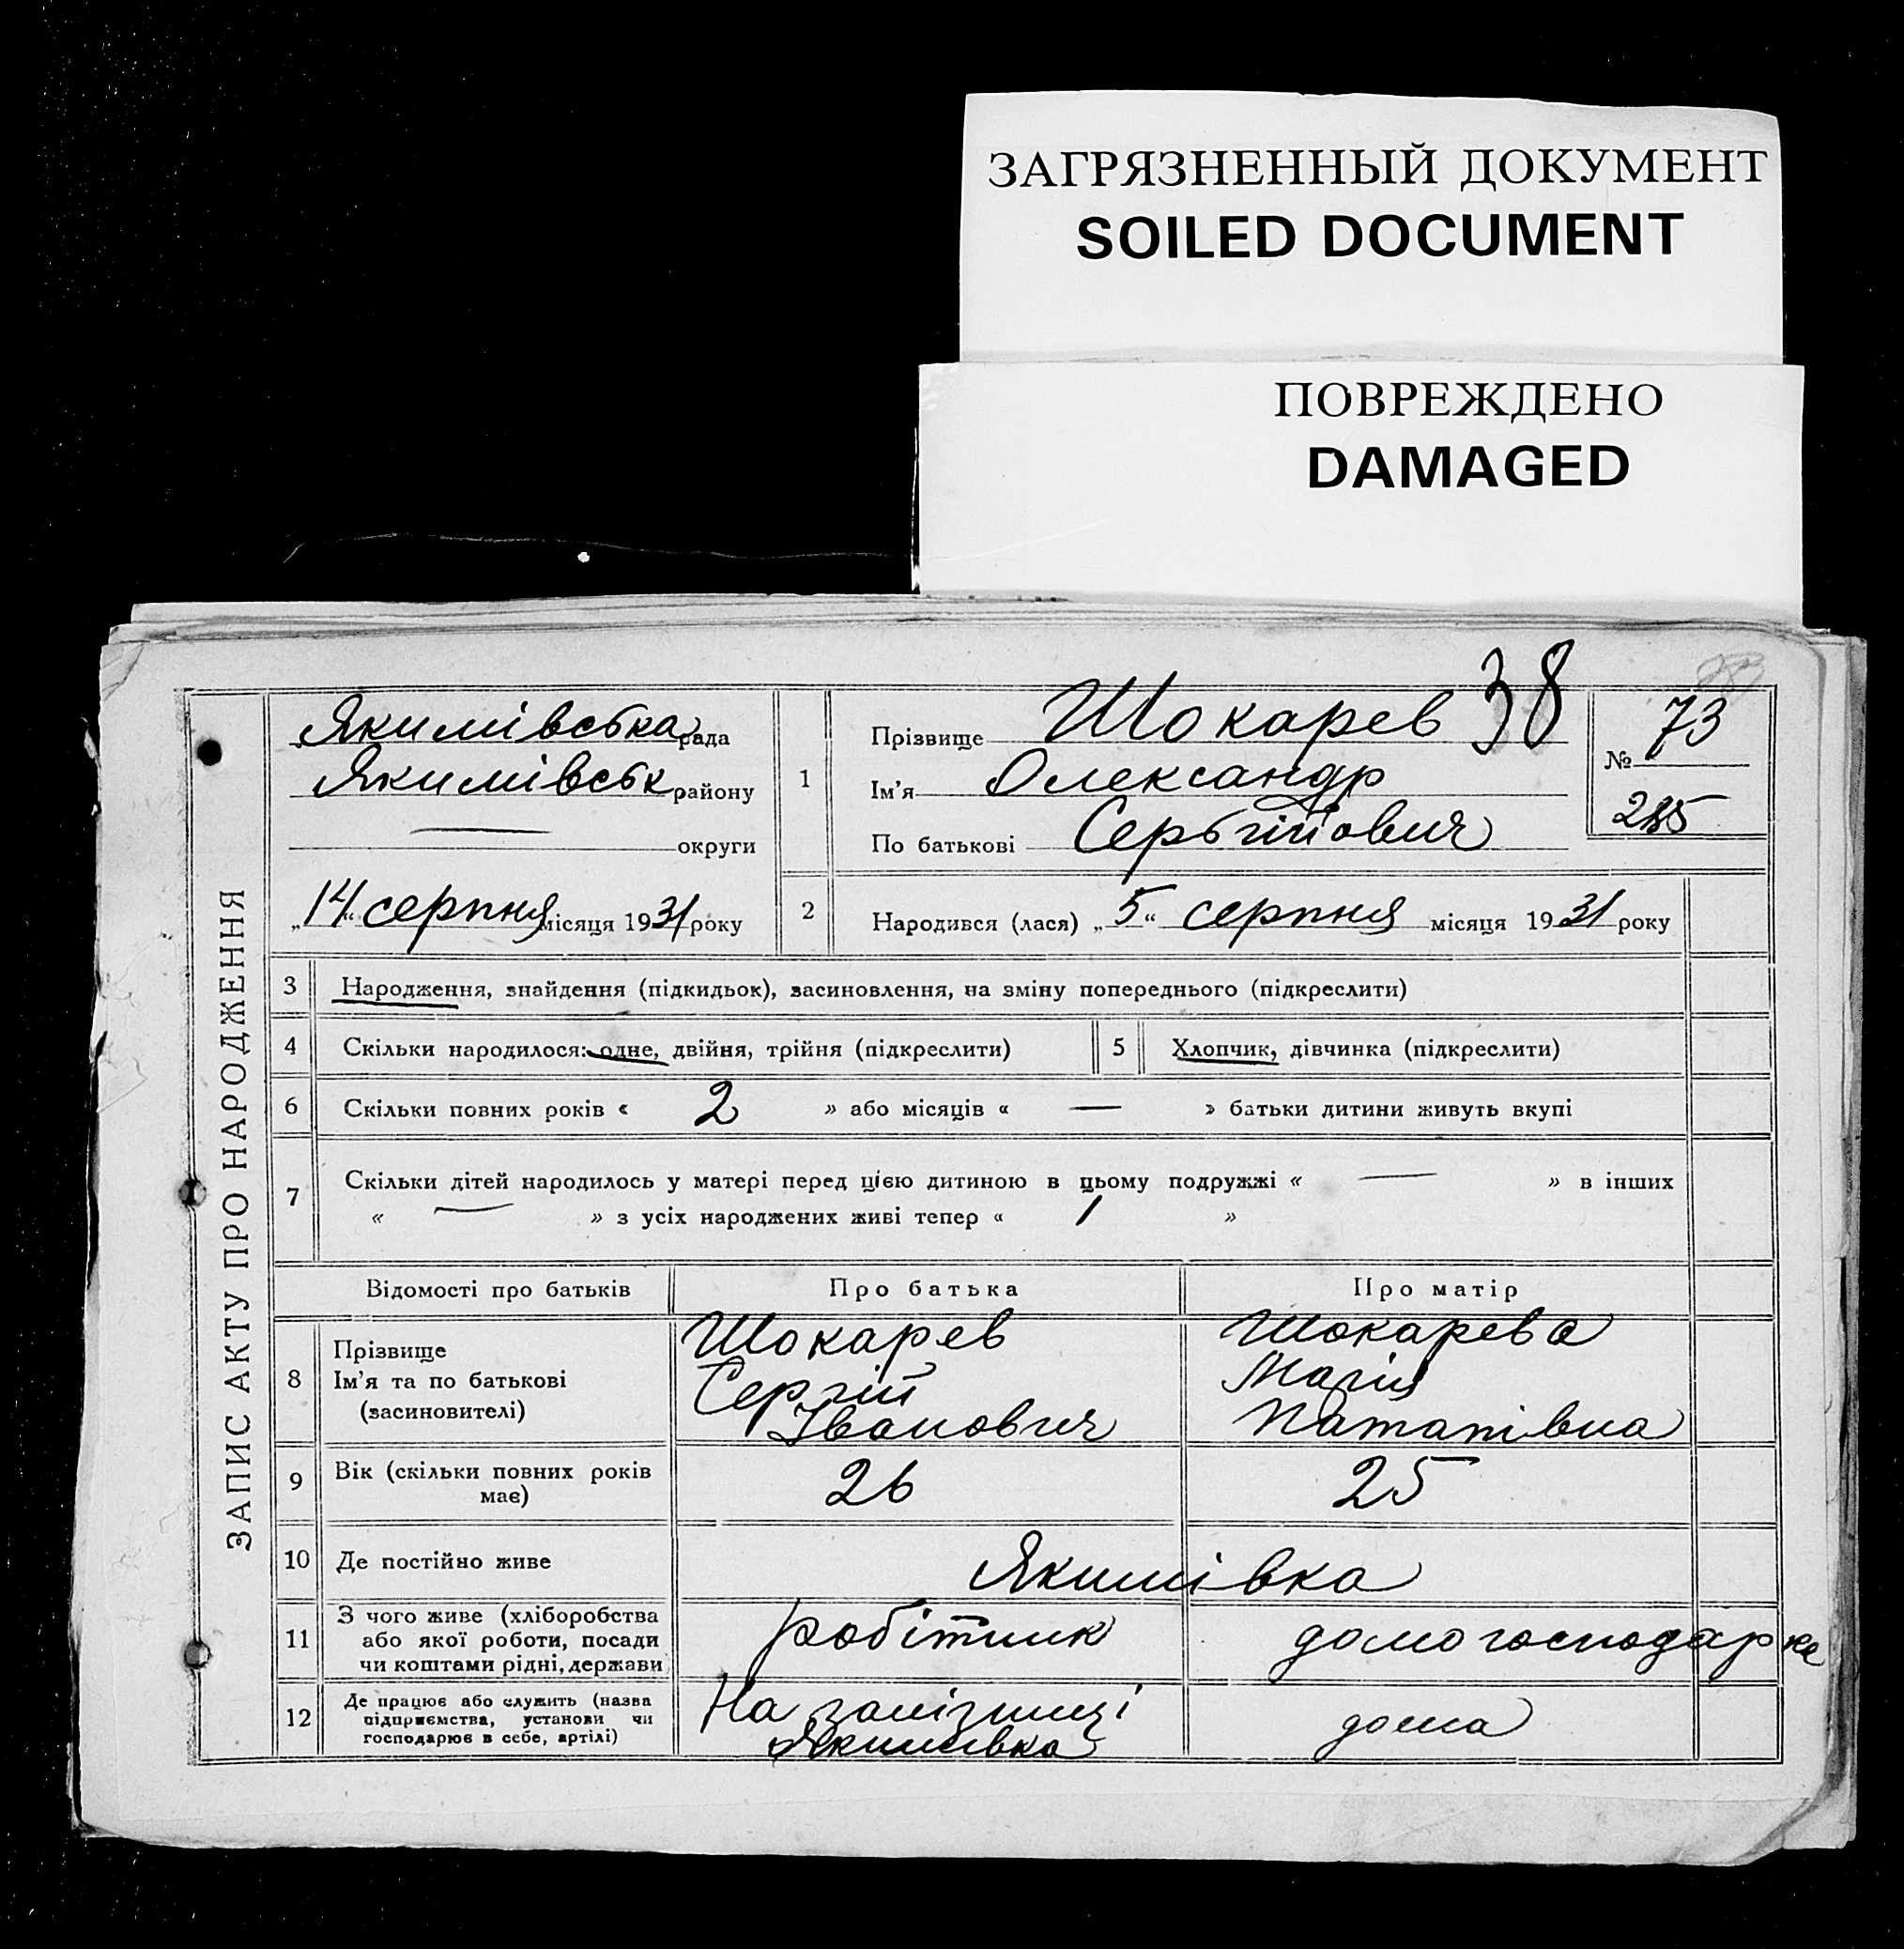 ЗАГРЯЗНЕННЫЙ ДОКУМЕНТ
SOILED DOCUMENT
ПОВРЕЖДЕНО
DAMAGED
38
ЗАПИС АКТУ ПРО НАРОДЖЕННЯ
Якимівська рада
Якимівськ району
— округи
„14“ серпня місяця 1931 року
1 Прізвище Шокарев
Ім'я Олександр
По батькові Сергійович
№ 73
285
2 Народився (лася) „5“ серпня місяця 1931 року
3 Народження, знайдення (підкидьок), засиновлення, на зміну попереднього (підкреслити)
4 Скільки народилося: одне, двійня, трійня (підкреслити) 5 Хлопчик, дівчинка (підкреслити)
6 Скільки повних років « 2 » або місяців « — » батьки дитини живуть вкупі
7 Скільки дітей народилось у матері перед цією дитиною в цьому подружжі « — » в інших
« — » з усіх народжених живі тепер « 1 »
Відомості про батьків Про батька Про матір
8 Прізвище Шокарев Шокарева
Ім'я та по батькові Сергій Марія
(засиновителі) Іванович Патапівна
9 Вік (скільки повних років має) 26 25
10 Де постійно живе Якимівка
11 З чого живе (хліборобства робітник домогосподарка
або якої роботи, посади
чи коштами рідні, держави
12 Де працює або служить (назва На залізниці дома
підприємства, установи чи Якимівка
господарює в себе, артілі)